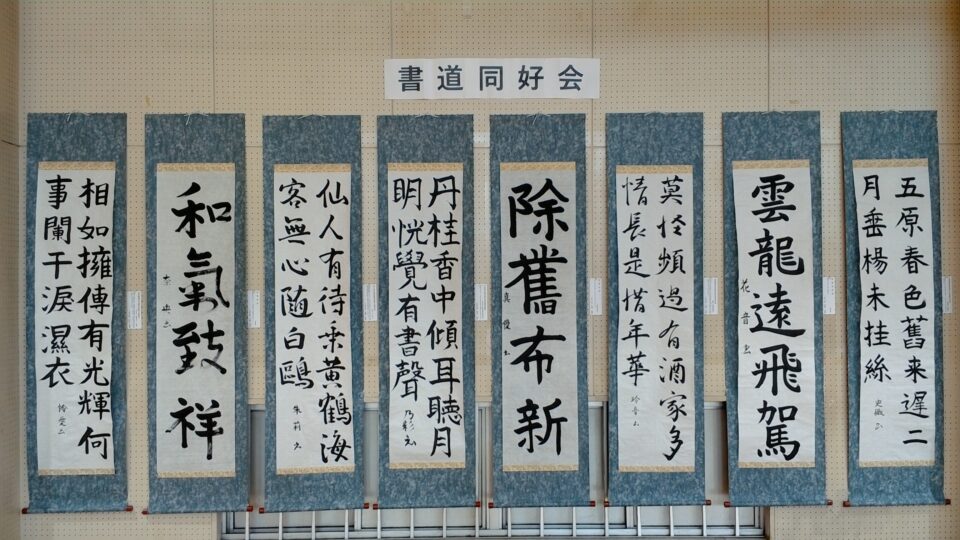 書道同好会
五原春色舊来遅二
月垂楊未挂絲
雲龍遠飛駕
花音書
莫怪頻過有酒家多
情長是惜年華
除舊布新
丹桂香中傾耳聴月
明恍覺有書聲
仙人有待乗黄鶴海
客無心随白鴎
和氣致祥
相如擁傳有光輝何
事闌干涙濕衣